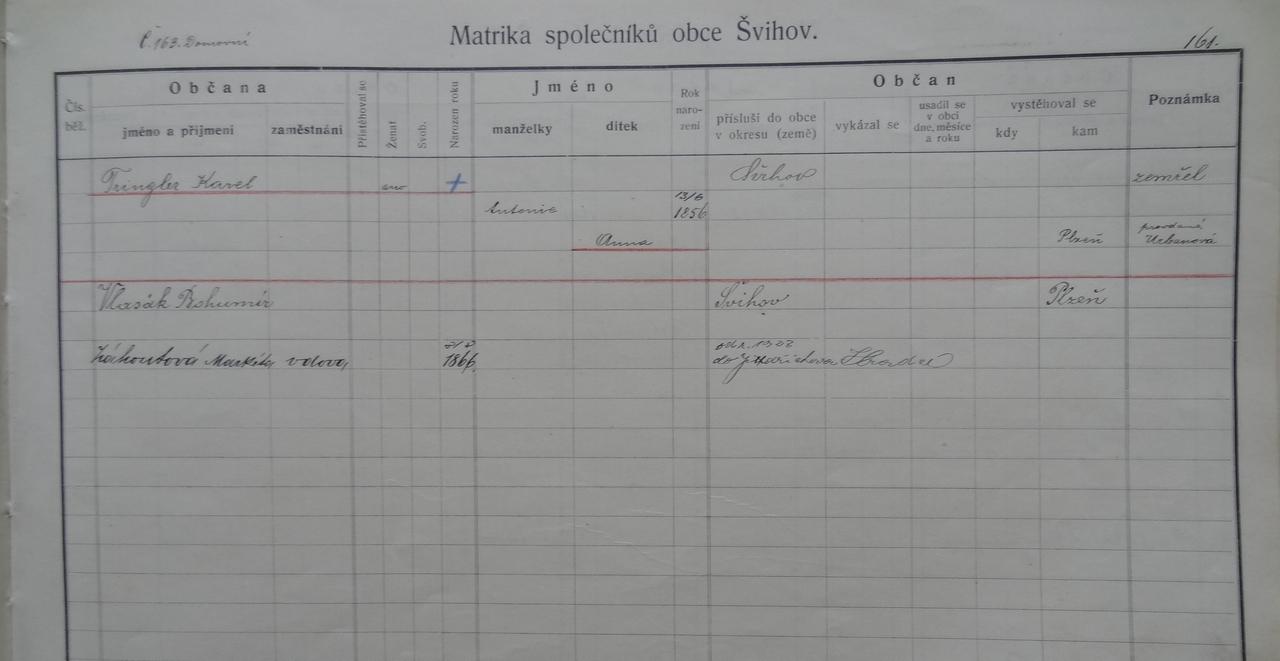 Č. 163. Domovní
Matrika společníků obce Švihov.
161.
Čís. běž.
Občana
jméno a přijmení
zaměstnání
Přistěhoval se
Ženat
Svob.
Narozen roku
Jméno
manželky
dítek
Rok naro- zení
Občan
přísluší do obce v okresu (země)
vykázal se
usadil se v obci dne, měsíce a roku
vystěhoval se
kdy
kam
Poznámka
Tringler Karel ano + Švihov zemřel
Antonie 13/6 1856
Anna Plzeň provdaná Urbanová
Vlasák Bohumír Švihov Plzeň
Záhoutová Markéta vdova 1866 do Jindřichova Hradce